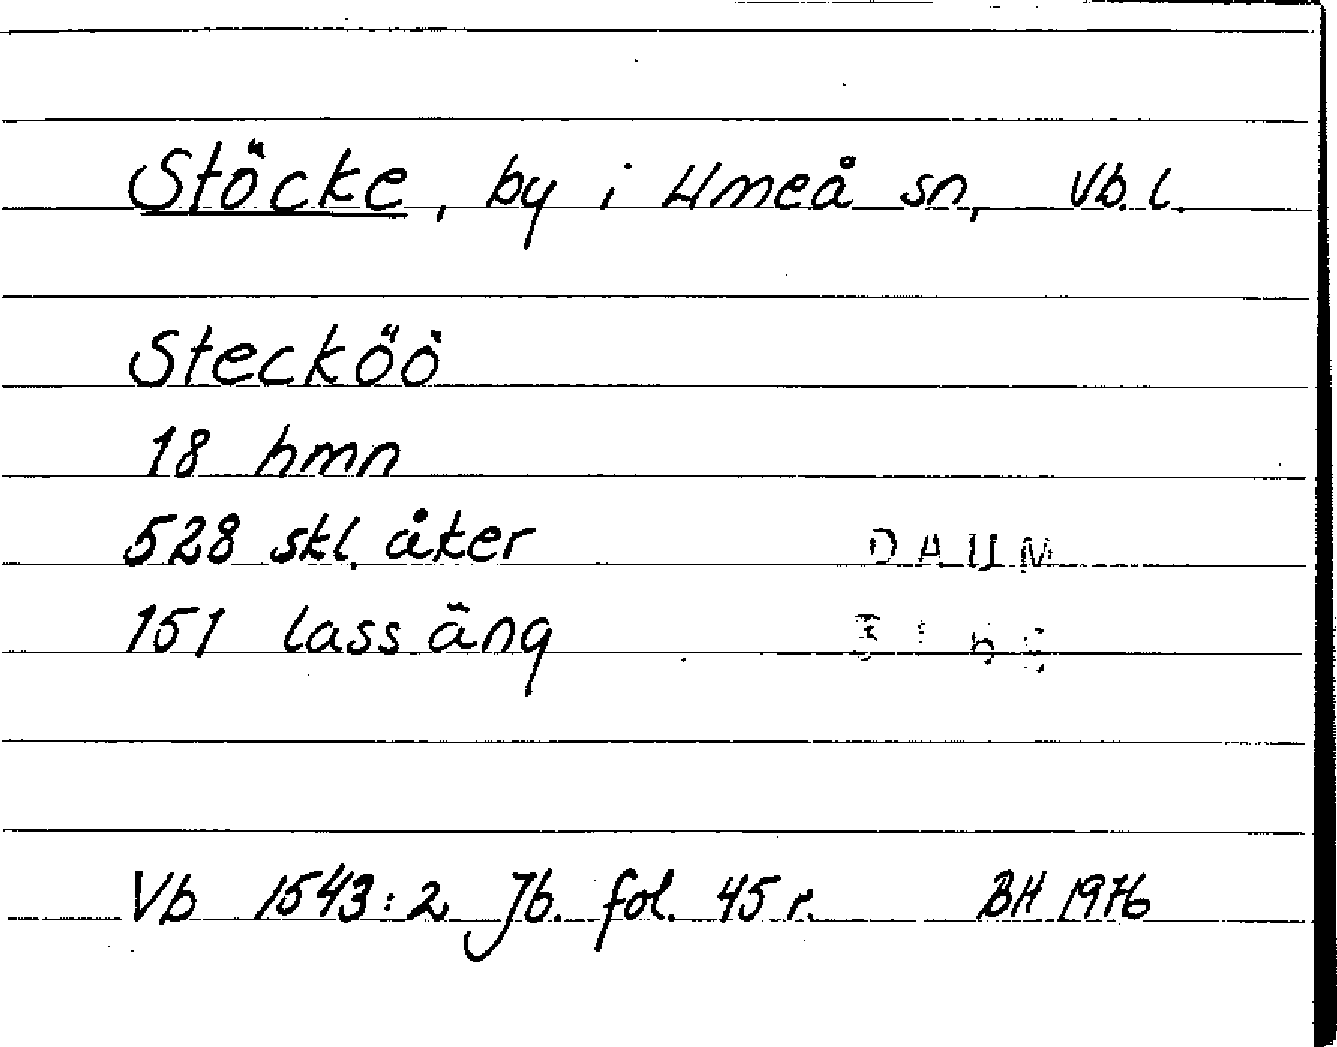 Stöcke, by i Umeå sn, Vb. l.
Stecköö
18 hmn
528 skl. åker
DAUM
151 lass äng
Vb 1543:2 Jb. fol. 45 r. BH 1976